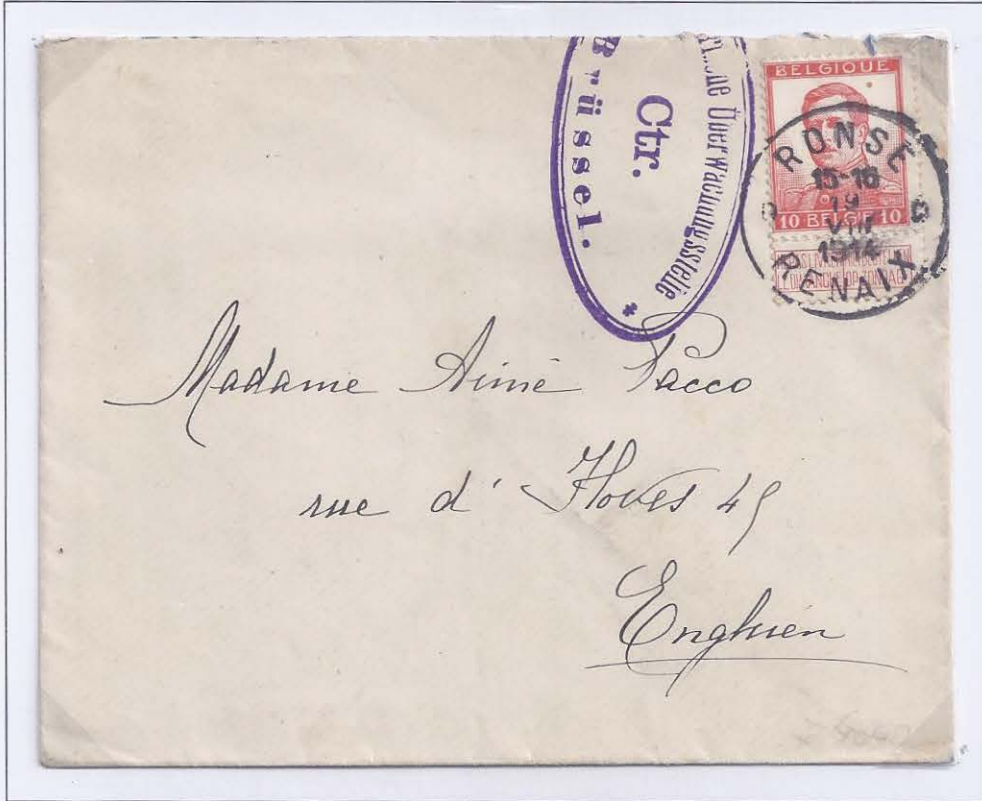 Überwachungsstelle
Ctr.
Brüssel.
*
BELGIQUE
10 BELGIË 10
RONSE
15-16
19
VIII
1914
RENAIX
Madame Aimé Pacco
rue d' Hoves 45
Enghien